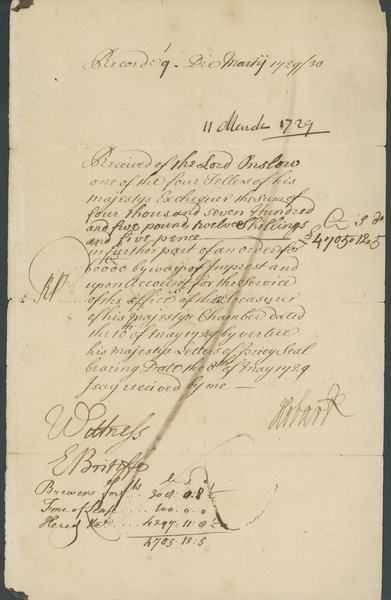 Record 9° Die Martij 1729/30
11 March 1729
Received of the Lord Onslow
one of the four Tellers of his
majestys Exchequer the sum of
four thousand seven Hundred
and five pounds twelve Shillings
and five pence
£ s d
4705-12-5
in further part of an order for
by way of Imprest and
upon Account for the Service
of the office of the Treasurer
of his majestys Chamber dated
the 10th of May 1729 by vertue
his Majestys Letters of privy Seal
bearing Date the 8th of May 1729
I say received by me —
Hobart
Witness
E Britiffe
£ s d
Brewers
100.0.0
4297.11.
4705.12.5